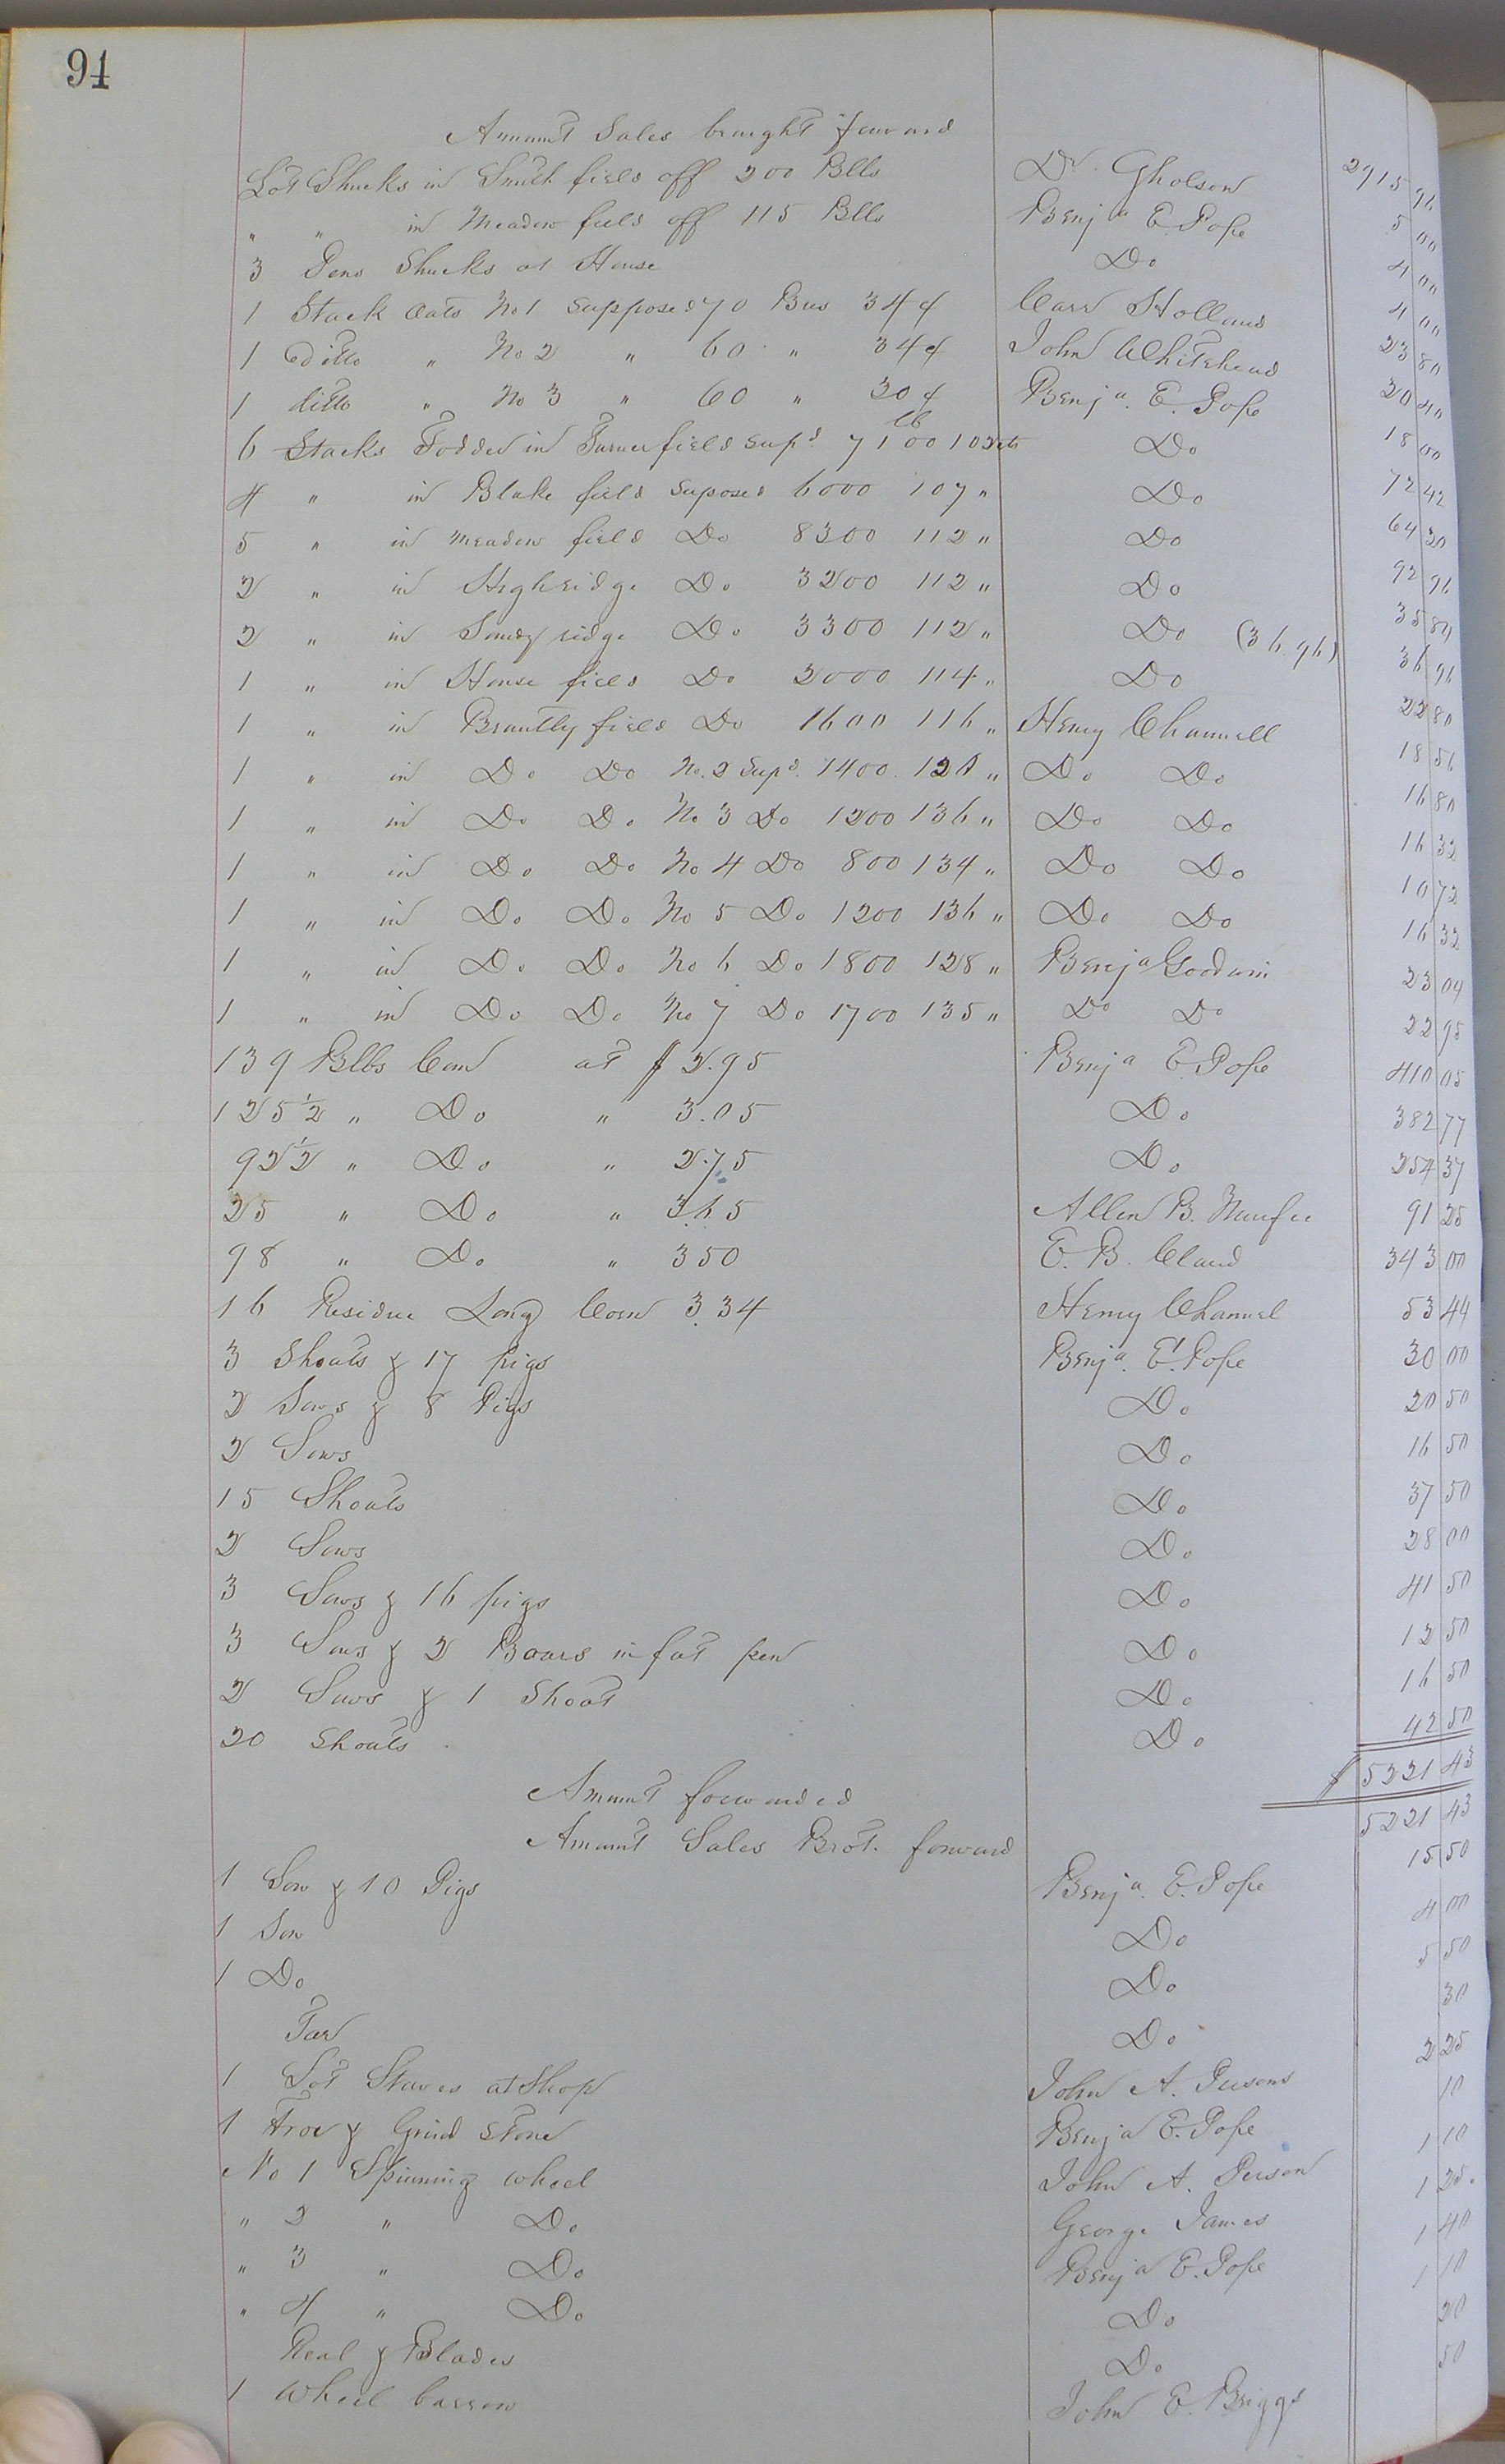 94
Amount Sales brought forward 2915 96
Lot Shucks in Smith field off 200 Blls Dr. Gholson 5 00
" " in Meadow field off 115 Blls Benja E. Pope 4 00
3 Pens Shucks at House Do 4 00
1 Stack Oats No 1 supposed 70 Bus 34 ¢ Carr Holland 23 80
1 ditto " No 2 " 60 " 34 ¢ John Whitehead 20 40
1 ditto " No 3 " 60 " 30 ¢ Benja. E. Pope 18 00
6 Stacks Fodder in Turner field supd 7100 lb 102 cts Do 72 42
4 " in Blake field Suposed 6000 107 " Do 64 20
5 " in Meadow field Do 8300 112 " Do 92 96
2 " in Highridge Do 3200 112 " Do 35 84
2 " in Sandy ridge Do 3300 112 " Do (36.96) 36 96
1 " in House field Do 2000 114 " Do 22 80
1 " in Brantly field Do 1600 116 " Henry Channell 18 56
1 " in Do Do No. 2 Supd. 1400. 120 " Do Do 16 80
1 " in Do Do No 3 Do 1200 136 " Do Do 16 32
1 " in Do Do No 4 Do 800 134 " Do Do 10 72
1 " in Do Do No 5 Do 1200 136 " Do Do 16 32
1 " in Do Do No 6 Do 1800 128 " Benja Goodwin 23 04
1 " in Do Do No 7 Do 1700 135 " Do Do 22 95
139 Blls Corn at $ 2.95 Benja E. Pope 410 05
125 1/2 " Do " 3.05 Do 382 77
92 1/2 " Do " 2.75 Do 254 37
25 " Do " 3.65 Allen B. 91 25
98 " Do " 350 E. B. Claud 343 00
16 Residue Long Corn 3.34 Henry Channel 53 44
3 Shoats & 17 pigs Benja. E. Pope 30 00
2 Sows & 8 Pigs Do 20 50
2 Sows Do 16 50
15 Shoats Do 37 50
2 Sows Do 28 00
3 Sows & 16 pigs Do 41 50
3 Sows & 2 Boars in fat pen Do 12 50
2 Sows & 1 Shoat Do 16 50
20 Shoats Do 42 50
Amount forwarded $ 5221 43
Amount Sales Brot. forward 5221 43
1 Sow & 10 Pigs Benja. E. Pope 15 50
1 Sow Do 4 00
1 Do Do 5 50
Tar Do 30
1 Lot Staves at Shop John A. Persons 2 25
1 Froe & Grind Stone Benja E. Pope 10
No 1 Spinning wheel John A. Person 1 10
" 2 " Do George James 1 25
" 3 " Do Benja E. Pope 1 40
" 4 " Do Do 1 10
Real & Blades Do 20
1 Wheel barrow John E. Briggs 50